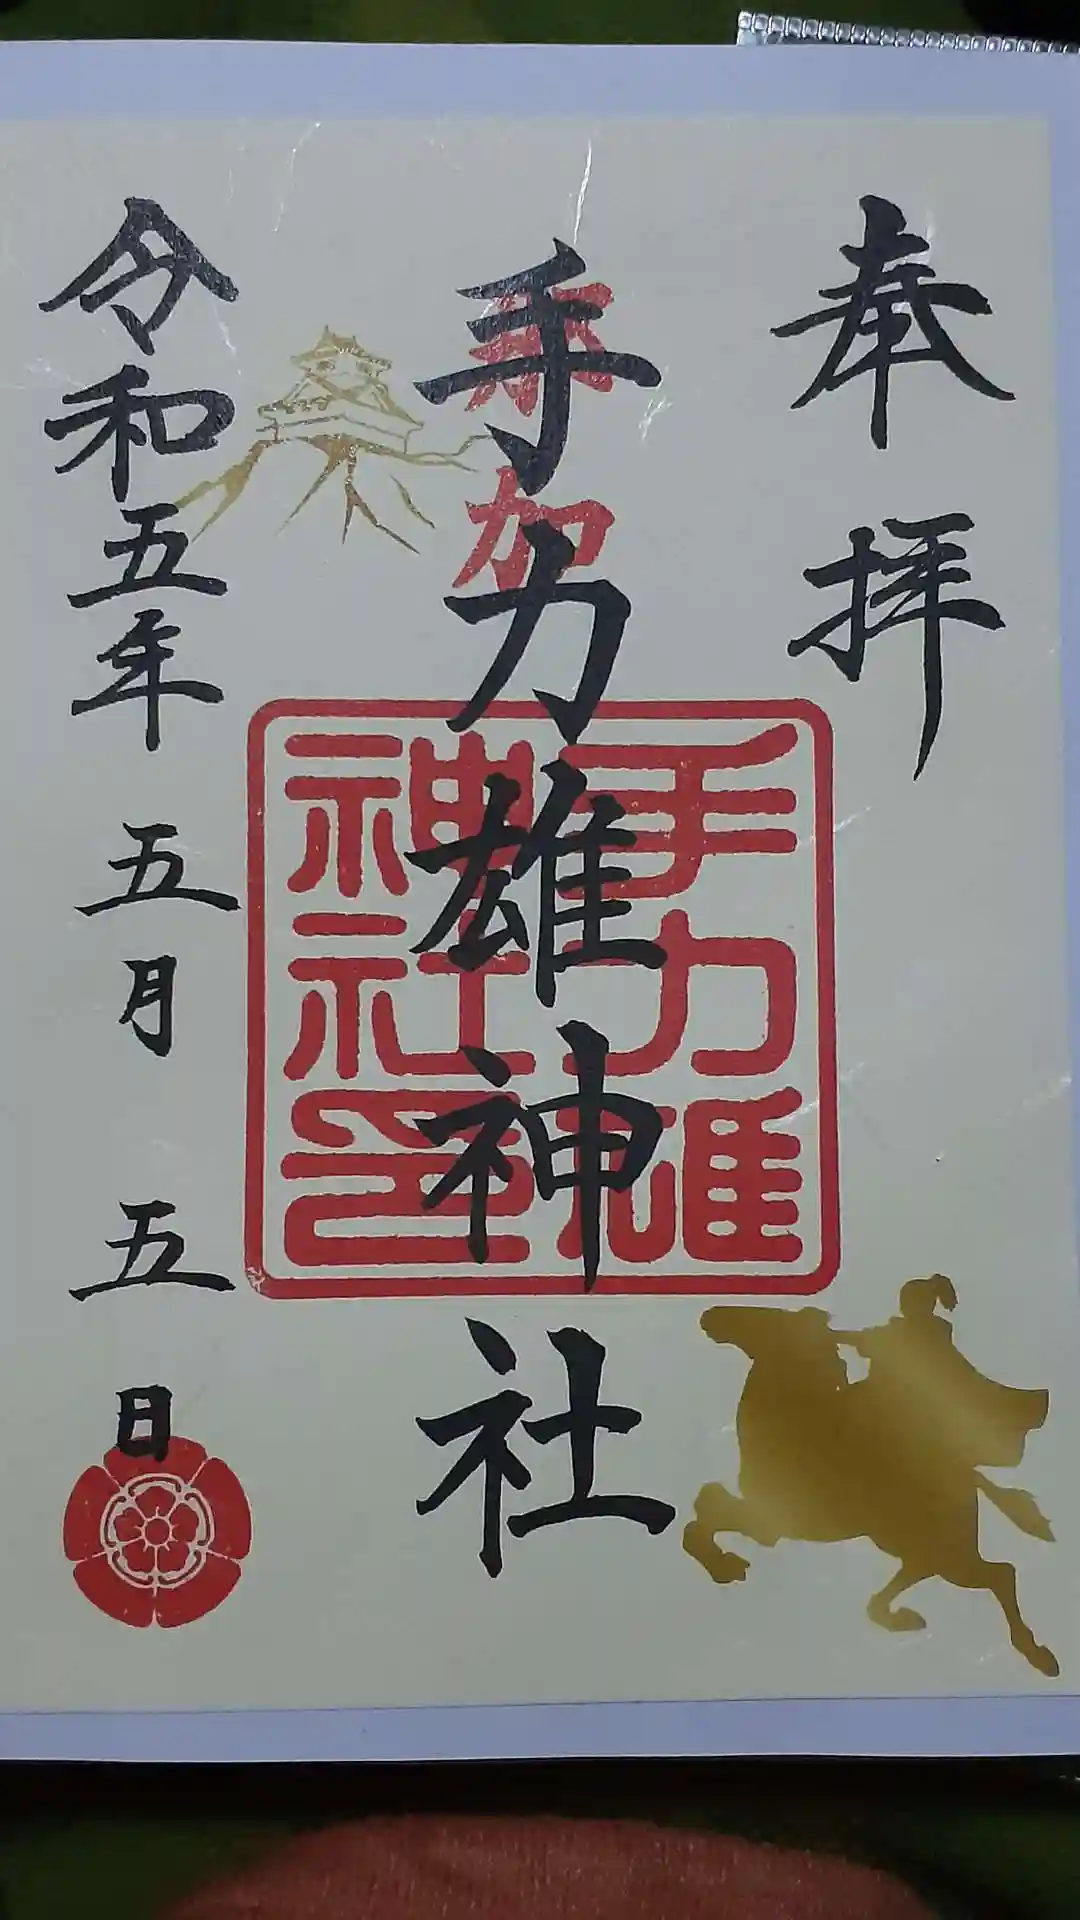 奉拝
手力雄神社
那加
手力雄
神社印
令和五年五月五日